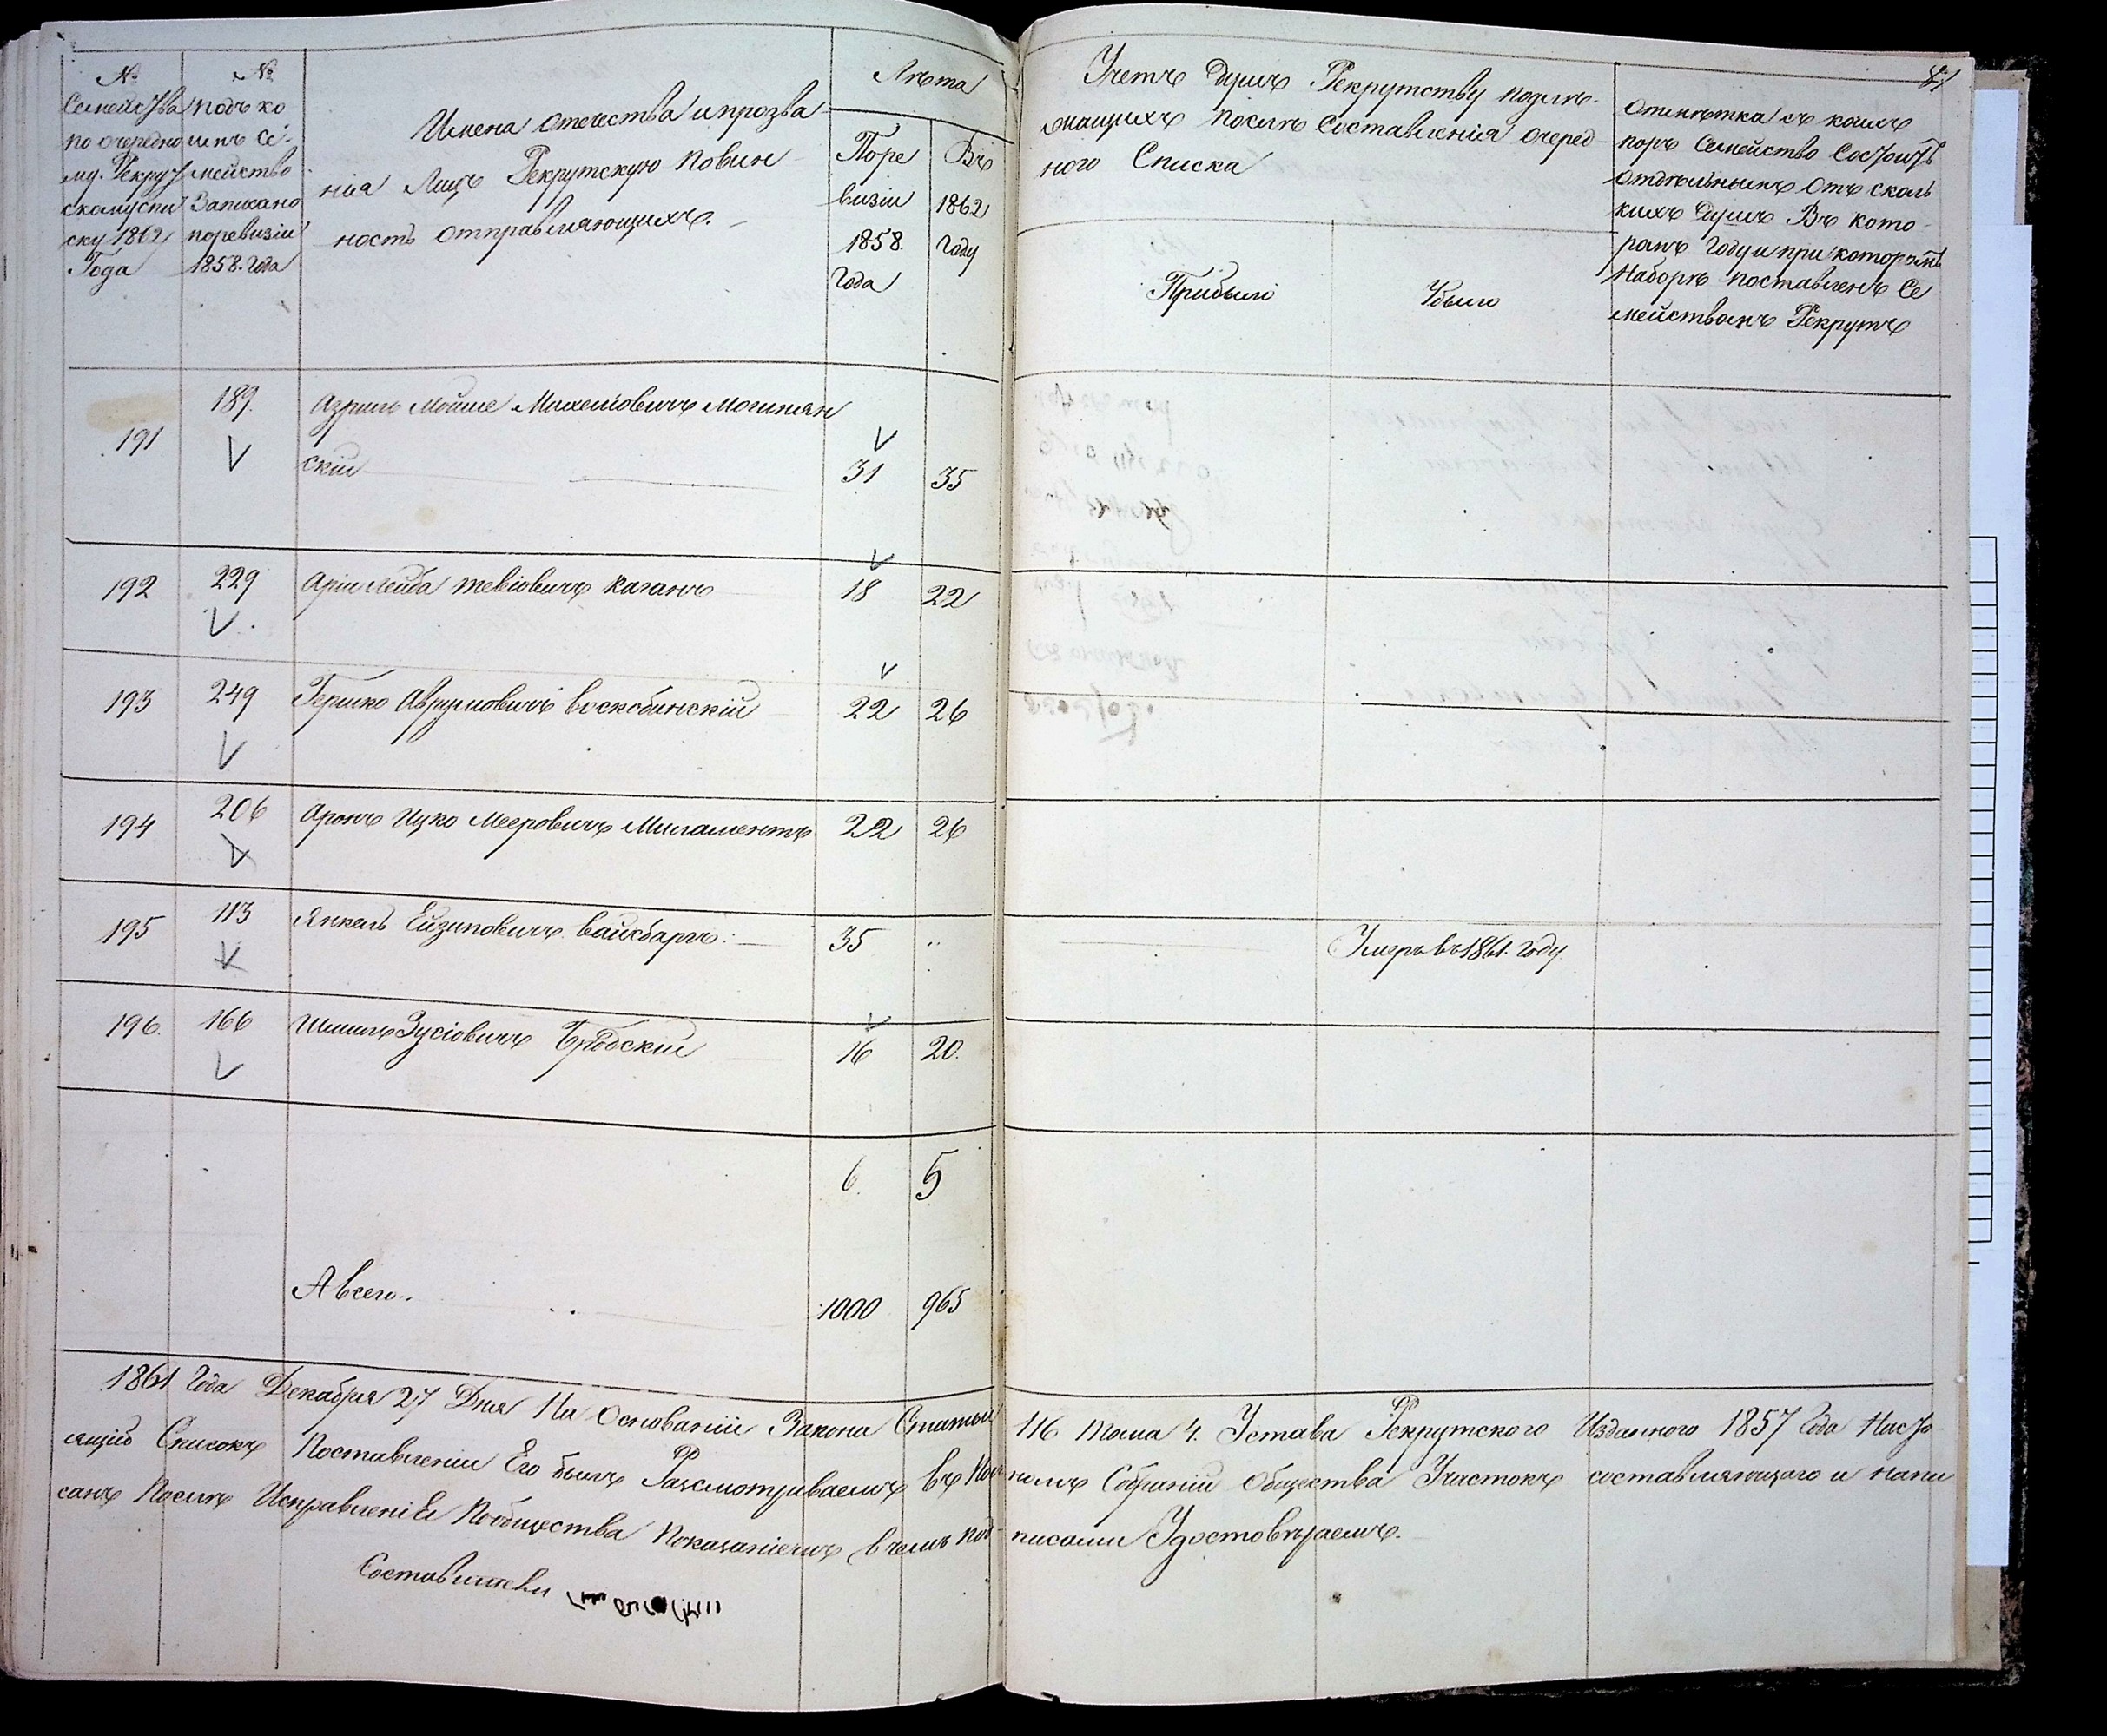 №
Семейства
по очередно
му Рекрут
скому спи
ску 1862
Года
№
подъ ко
имъ Се-
мейство
Записано
по ревизіи
1858. года
Имена отечества и прозва-
нія Лицъ Рекрутскую повин-
ность отправляющихъ. -
Лѣта
По ре
визіи
1858.
Года
Въ
1862
Году
87
Учетъ душъ Рекрутству подле-
жащихъ послѣ Составленія очеред-
ного Списка
Прибыло
Убыло
Отмѣтка съ коихъ
поръ Семейство Состоитъ
отдѣльнымъ Отъ сколь
кихъ душъ Въ кото-
ромъ Году и при которомъ
Наборѣ поставленъ Се
мействомъ Рекрутъ
191 189. Азриль Мойше Михелiовичъ Могилян
скій 31 35
192 229 Арiи Лейба Тевіовичъ Каганъ 18 22
193 249 Гершко Аврумовичъ Воскобинскій 22 26
194 206 Аронъ Ицко Мееровичъ Миламентъ 22 26
195 113 Янкель Ейзиповичъ Вайсбаргъ: 35 ..
Умеръ въ 1861. году
196. 166 Шмиль Зусіовичъ Бродскій 16 20.
6. 5
А всего. 1000 965
1861 Года Декабря 27 Дня На Основаніи Закона Статьи 116 Тома 4. Устава Рекрутского Изданного 1857 Года Насто
ящій Списокъ Поставленіи Его былъ Разсмотриваемъ въ Пол номъ Собраніи Общества Участокъ составляющаго и напи
санъ Послѣ Исправленіе Пообщества Показаніемъ въ чемъ под- писами Удостовѣряемъ.